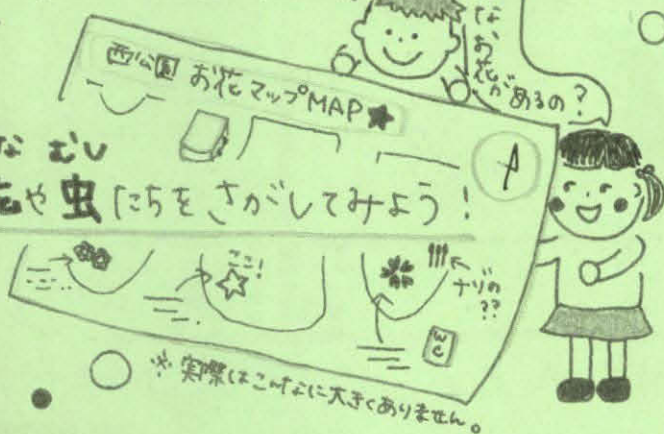 な
お
花が
あるの?
西公園 お花マップMAP★
な むし
花や虫たちをさがしてみよう!
ここ!
ナゾの
??
WC
※実際はこんなに大きくありません。